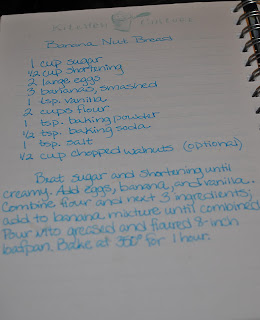 Kitchen
Banana Nut Bread
1 cup sugar
1/2 cup shortening
2 large eggs
3 bananas, smashed
1 tsp. vanilla
2 cups flour
1 tsp. baking powder
1/2 tsp. baking soda
1 tsp. salt
1/2 cup chopped walnuts (optional)
Beat sugar and shortening until
creamy. Add eggs, banana, and vanilla.
Combine flour and next 3 ingredients;
add to banana mixture until combined
Pour into greased and floured 8-inch
loafpan. Bake at 350° for 1 hour.